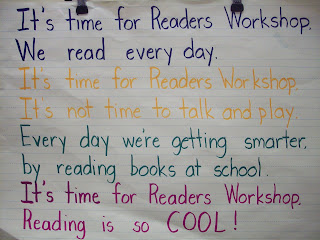 It's time for Readers Workshop.
We read every day.
It's time for Readers Workshop.
It's not time to talk and play.
Every day we're getting smarter,
by reading books at school.
It's time for Readers Workshop.
Reading is so COOL!